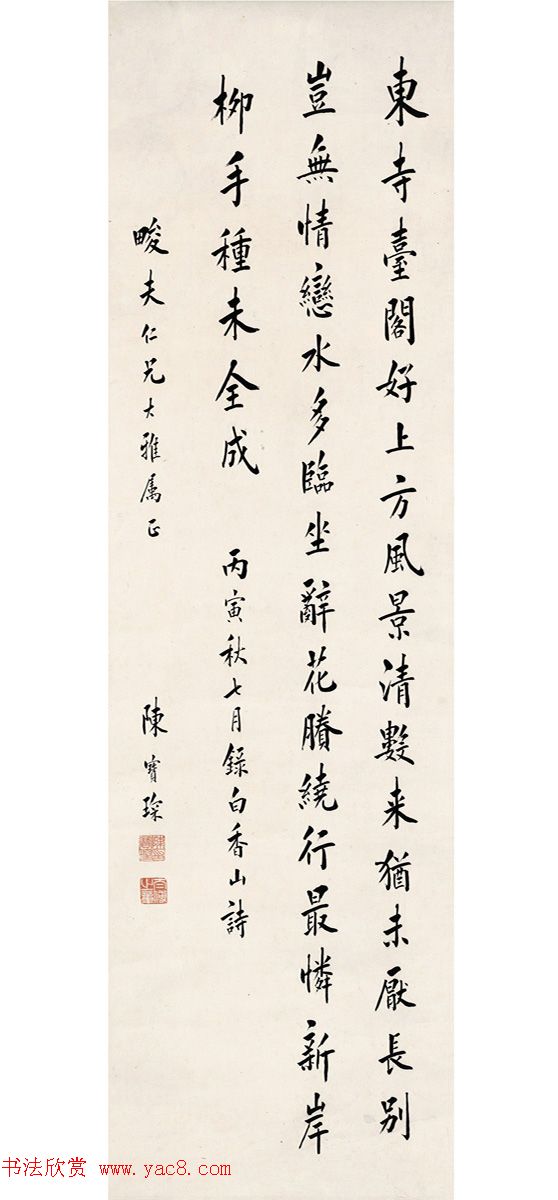 東寺臺閣好上方風景清數来猶未厭長别
豈無情戀水多臨坐辭花賸繞行最憐新岸
柳手種未全成
丙寅秋七月録白香山詩
畯夫仁兄大雅属正
陳寶琛
书法欣赏 www.yac8.com